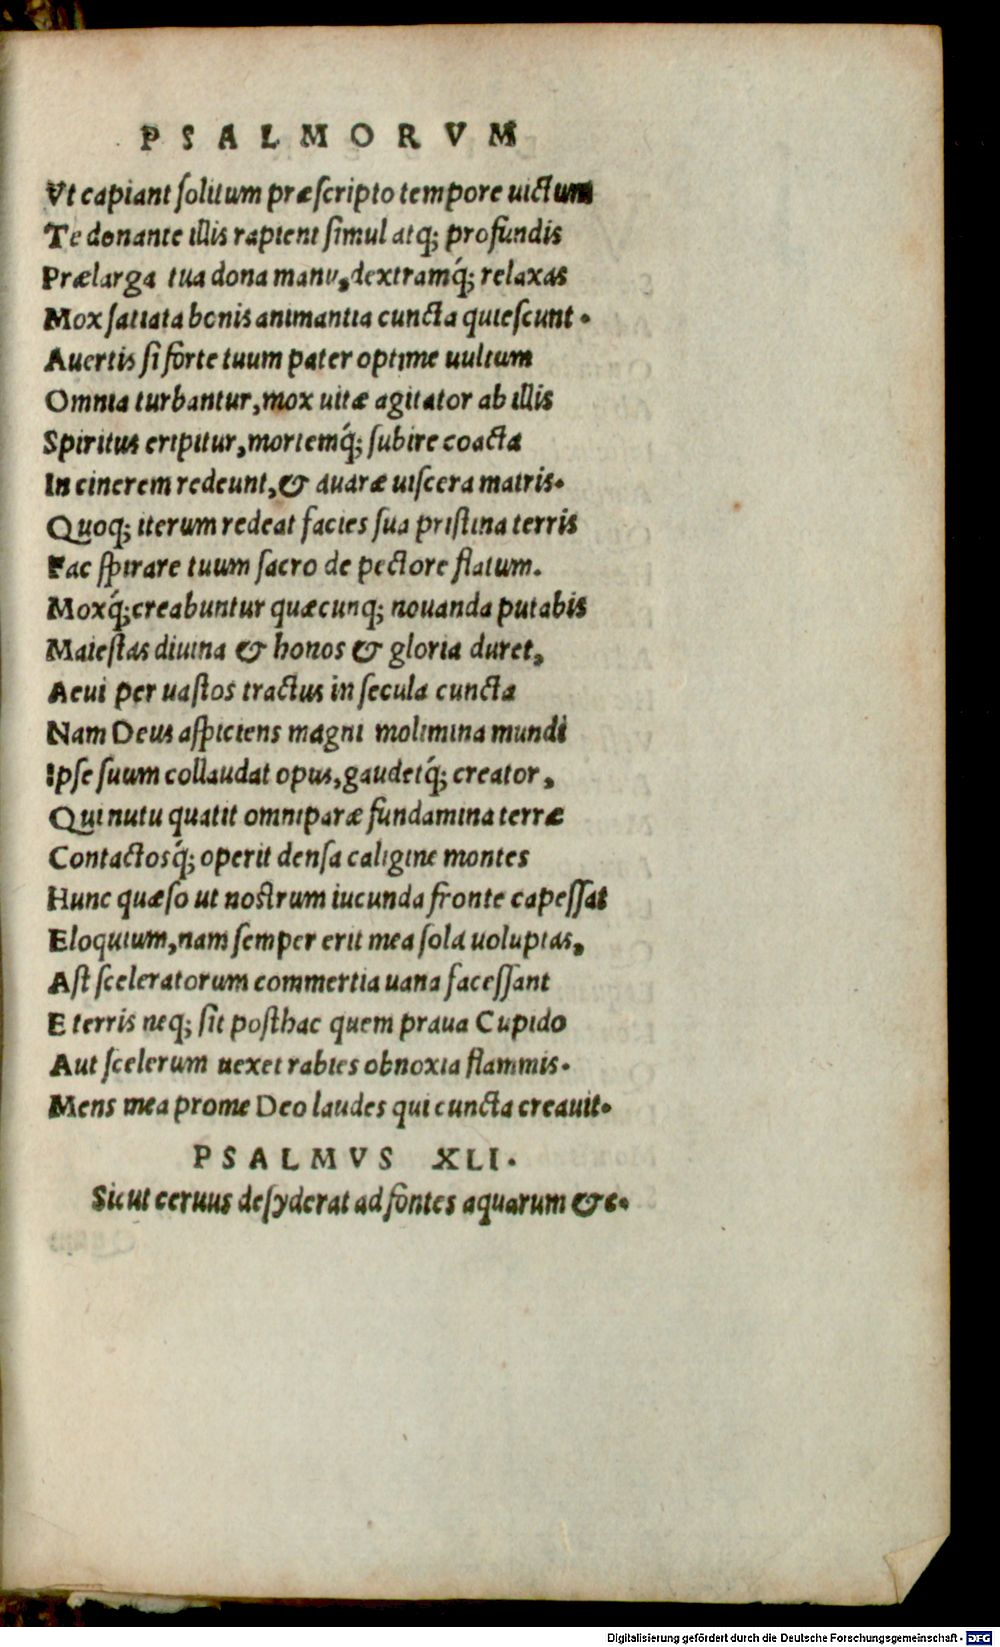 PSALMORVM
Vt capiant ſolitum præſcripto tempore uictum
Te donante illis rapient ſimul atq; profundis
Prælarga tua dona manu, dextramq́; relaxas
Mox ſatiata bonis animantia cuncta quieſcunt.
Auertis ſi forte tuum pater optime uultum
Omnia turbantur, mox uitæ agitator ab illis
Spiritus eripitur, mortemq́; ſubire coacta
In cinerem redeunt, & auaræ uiſcera matris.
Quoq; iterum redeat facies ſua priſtina terris
Fac ſpirare tuum ſacro de pectore flatum.
Moxq́; creabuntur quæcunq; nouanda putabis
Maieſtas diuina & honos & gloria duret,
Aeui per uaſtos tractus in ſecula cuncta
Nam Deus aſpiciens magni molimina mundi
Ipſe ſuum collaudat opus, gaudetq́; creator,
Qui nutu quatit omniparæ fundamina terræ
Contactosq́; operit denſa caligine montes
Hunc quæſo ut noſtrum iucunda fronte capeſſat
Eloquium, nam ſemper erit mea ſola uoluptas,
Aſt ſceleratorum commertia uana faceſſant
E terris neq; ſit poſthac quem praua Cupido
Aut ſcelerum uexet rabies obnoxia flammis.
Mens mea prome Deo laudes qui cuncta creauit.
PSALMVS XLI.
Sicut ceruus deſyderat ad fontes aquarum &c.
Digitalisierung gefördert durch die Deutsche Forschungsgemeinschaft - DFG